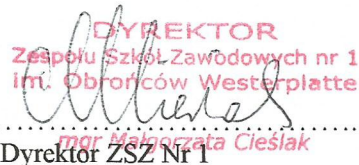 DYREKTOR
Zespołu Szkół Zawodowych nr 1
im. Obrońców Westerplatte
mgr Małgorzata Cieślak
Dyrektor ZSZ Nr 1